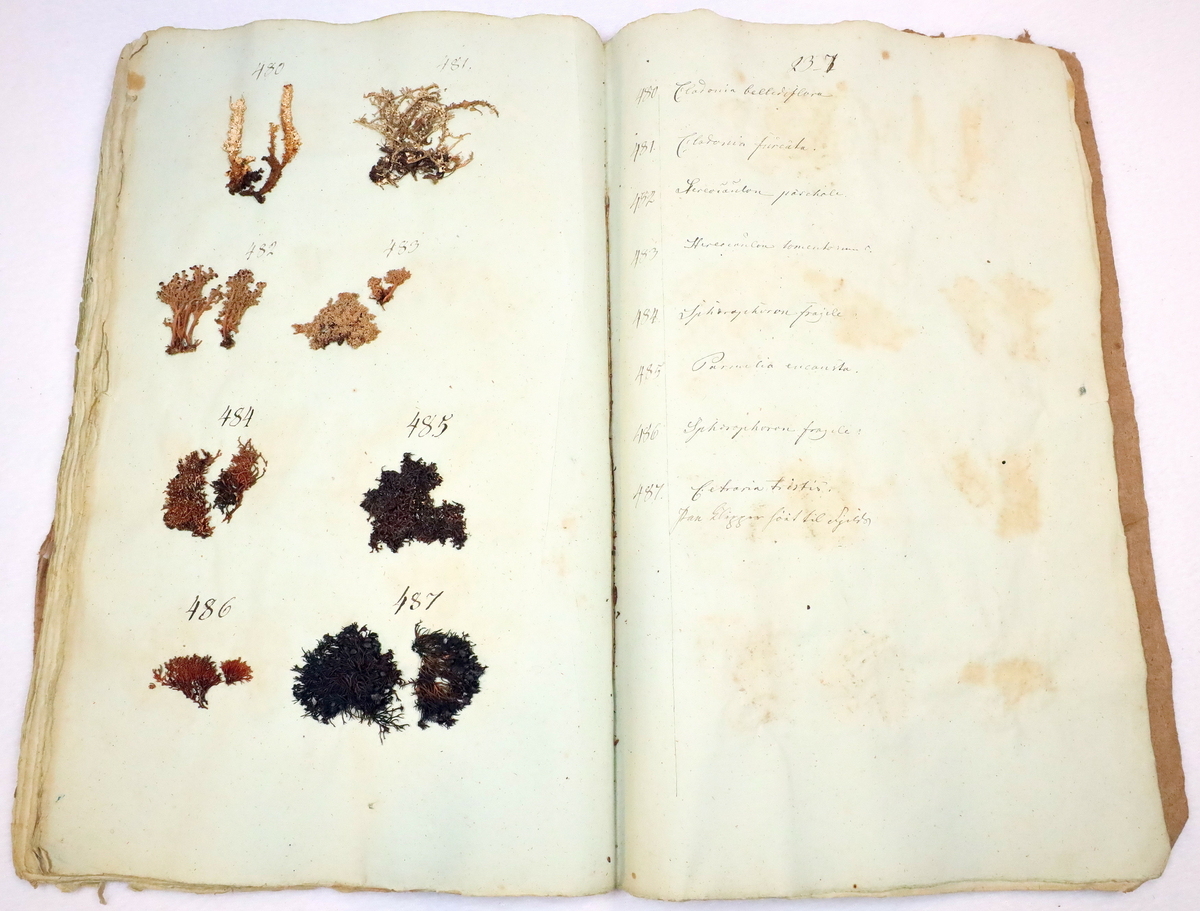 480
481.
482
483
484
485
486
487
237
480 Cladonia bellidiflora
481. Cladonia furcata.
482 Stereocaulon paschale
483 Stereocaulon tomentosum
484 Sphærophoron fragile
485 Parmelia encausta.
486 Sphærophoron fragile
487. Cetraria tristis.
til